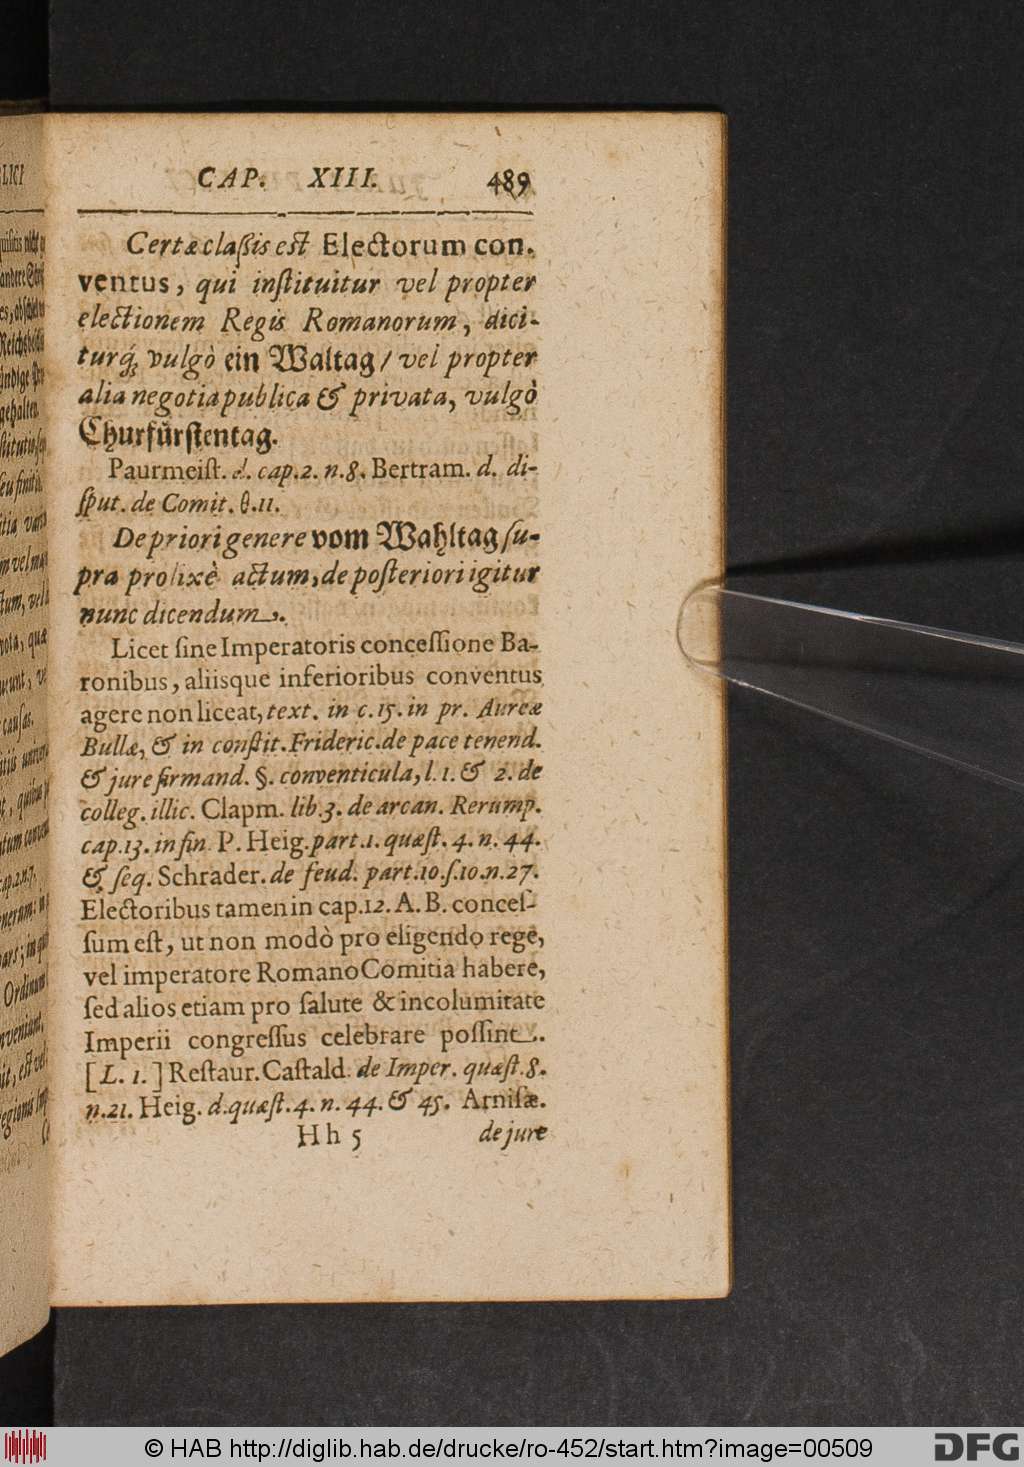 CAP. XIII. 489
Certæ claßis est Electorum con-
ventus, qui instituitur vel propter
electionem Regis Romanorum, dici-
turq́; vulgò ein Waltag / vel propter
alia negotia publica & privata, vulgò
Churfürstentag.
Paurmeist. d. cap. 2. n. 8. Bertram. d. di-
sput. de Comit. θ. 11.
De priori genere vom Wahltag su-
pra prolixè actum, de posteriori igitur
nunc dicendum.
Licet sine Imperatoris concessione Ba-
ronibus, aliisque inferioribus conventus
agere non liceat, text. in c. 15. in pr. Aureæ
Bullæ, & in constit. Frideric. de pace tenend.
& jure firmand. §. conventicula, l. 1. & 2. de
colleg. illic. Clapm. lib. 3. de arcan. Rerump.
cap. 13. in fin. P. Heig. part. 1. quæst. 4. n. 44.
& seq. Schrader. de feud. part. 10. s. 10. n. 27.
Electoribus tamen in cap. 12. A. B. conces-
sum est, ut non modò pro eligendo rege,
vel imperatore Romano Comitia habere,
sed alios etiam pro salute & incolumitate
Imperii congressus celebrare possint.
[L. 1.] Restaur. Castald. de Imper. quæst. 8.
n. 21. Heig. d. quæst. 4. n. 44. & 45. Arnisæ.
Hh 5 de jure
© HAB http://diglib.hab.de/drucke/ro-452/start.htm?image=00509
DFG